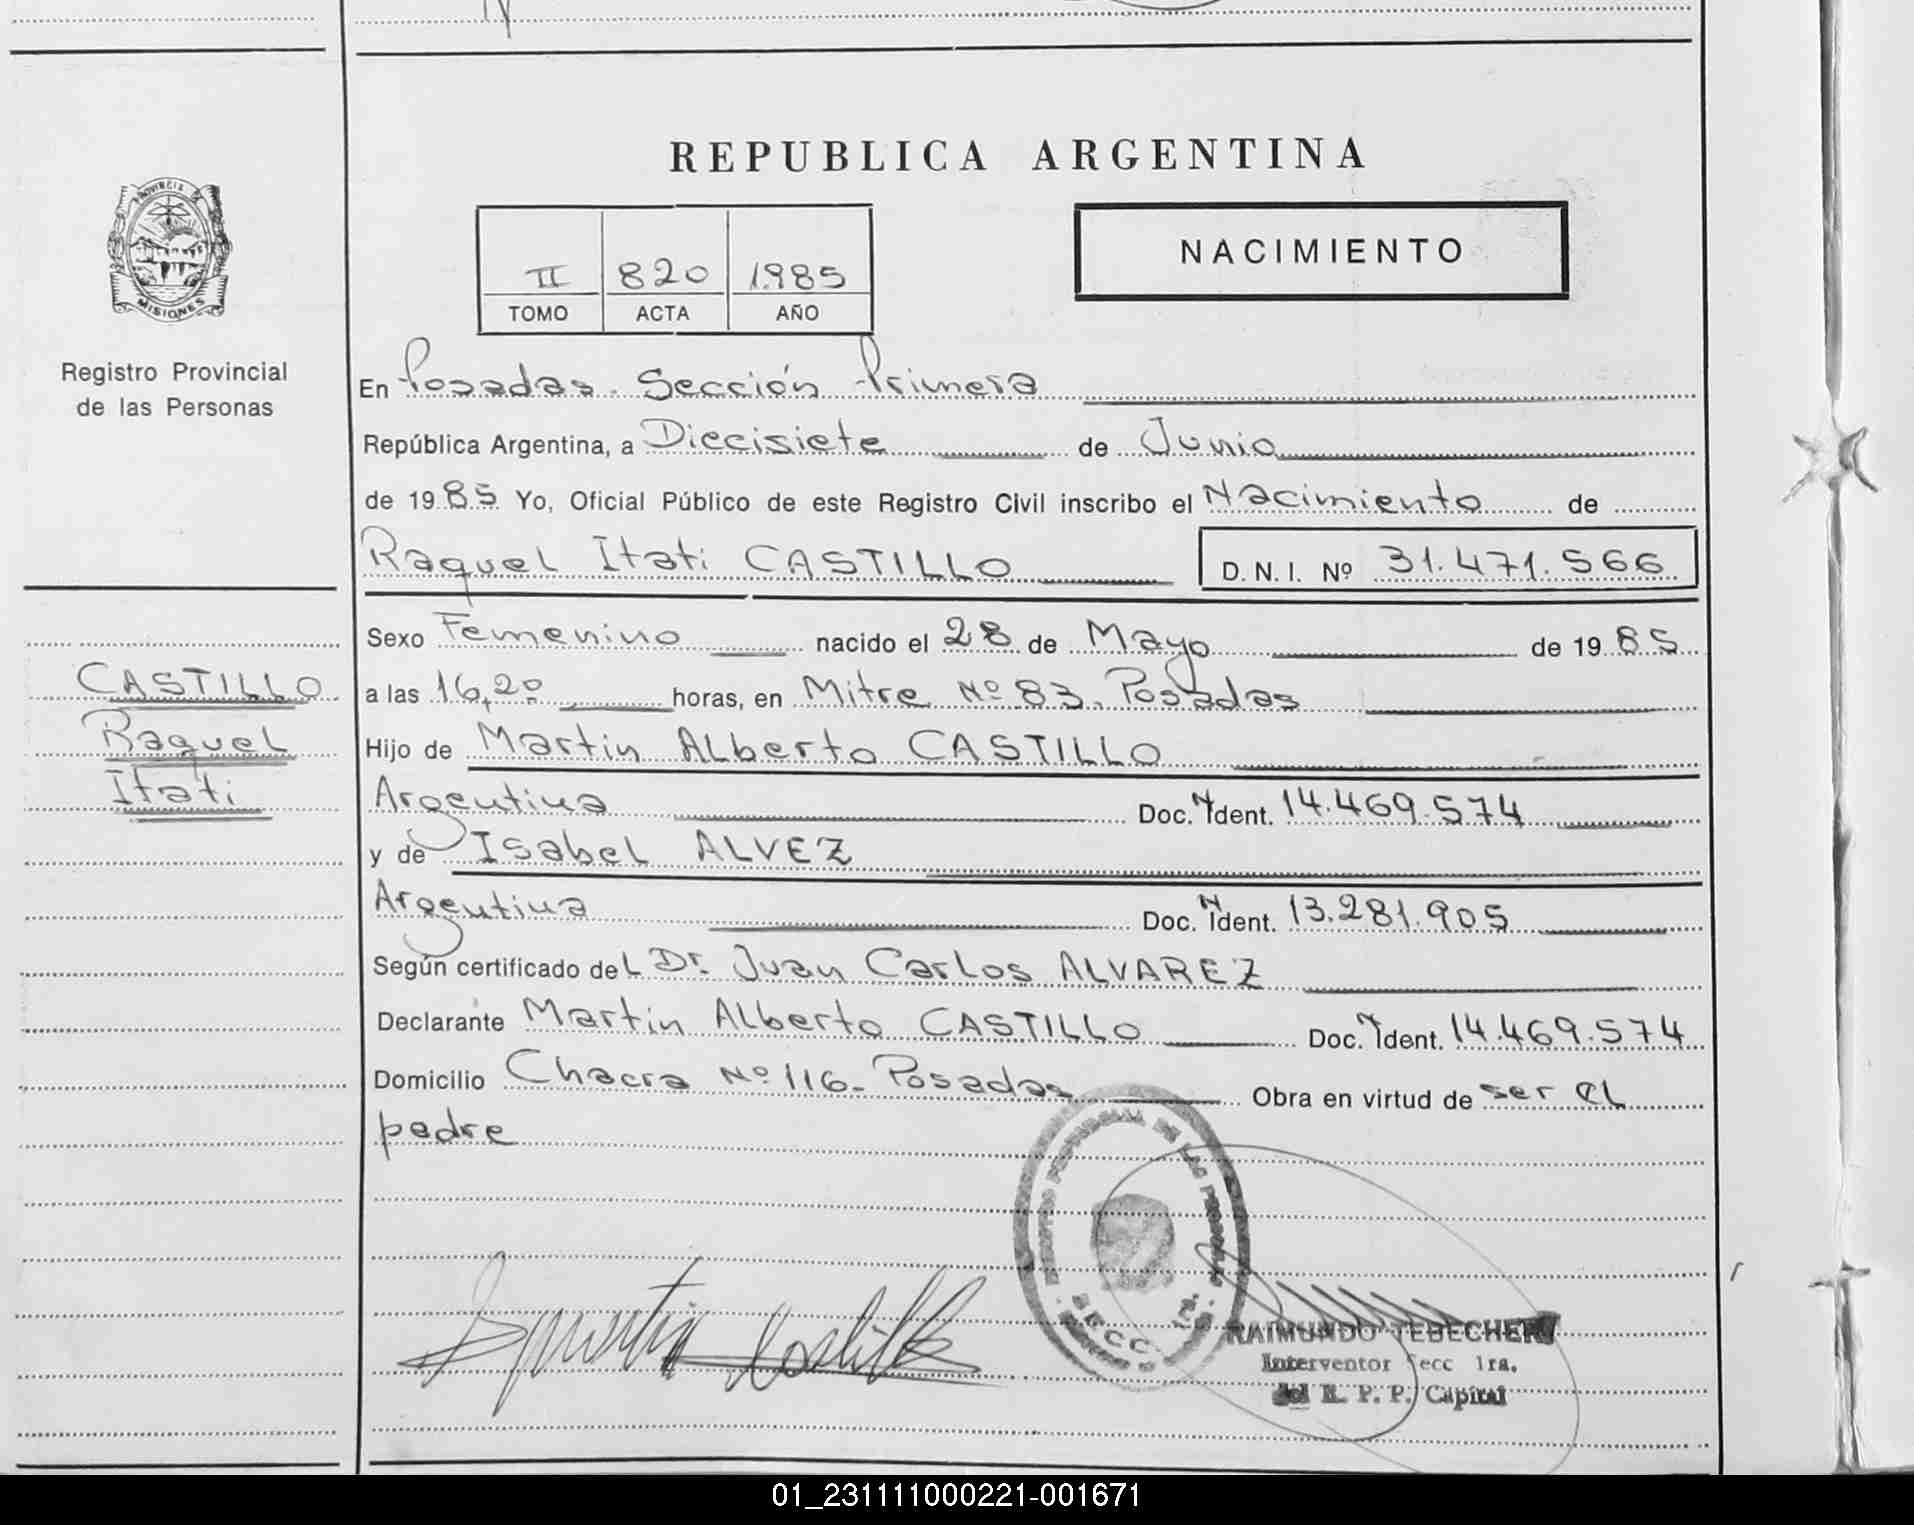 REPUBLICA ARGENTINA
PROVINCIA DE
MISIONES
Registro Provincial
de las Personas
NACIMIENTO
II 820 1985
TOMO ACTA AÑO
En Posadas. Sección Primera
República Argentina, a Diecisiete de Junio
de 1985 Yo, Oficial Público de este Registro Civil inscribo el Nacimiento de
Raquel Itati CASTILLO D. N. I. Nº 31.471.566
Sexo Femenino nacido el 28 de Mayo de 1985
CASTILLO
Raquel
Itati
a las 16,20 horas, en Mitre Nº 83. Posadas
Hijo de Martin Alberto CASTILLO
Argentina Doc. N Ident. 14.469.574
y de Isabel ALVEZ
Argentina Doc. N Ident. 13.281.905
Según certificado del Dr. Juan Carlos ALVAREZ
Declarante Martin Alberto CASTILLO Doc. N Ident. 14.469.574
Domicilio Chacra Nº 116- Posadas Obra en virtud de ser el
padre
PROVINCIAL DE LAS
SECC. 1ª
Martin Castillo
RAIMUNDO TEBECHERI
Interventor Secc 1ra.
del R. P. P. Capital
01_231111000221-001671